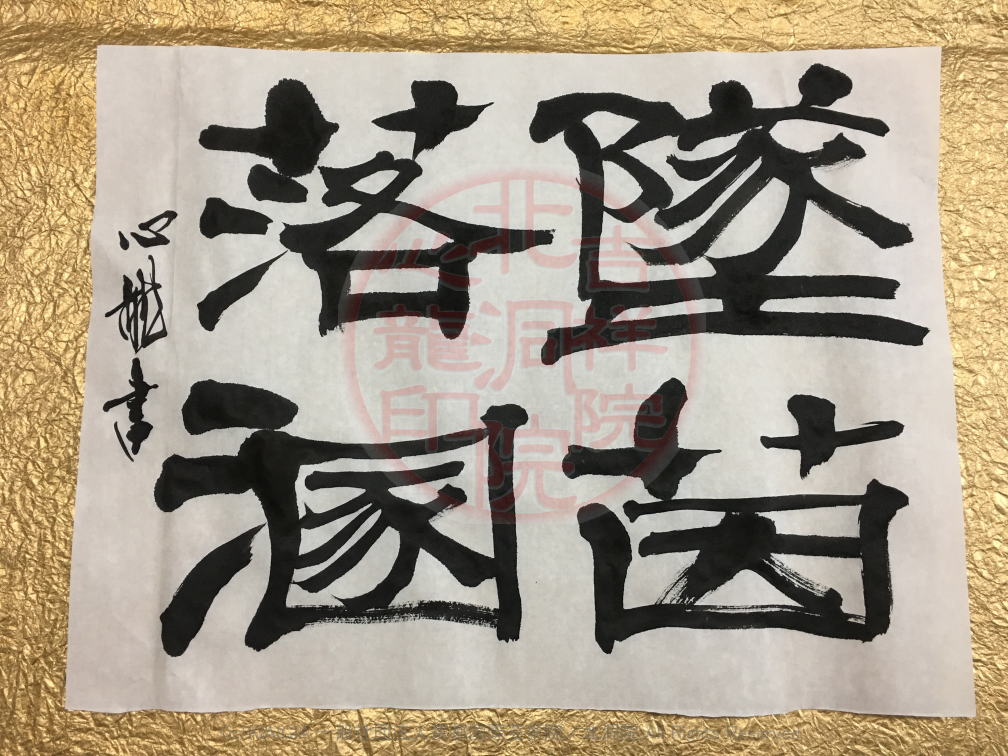 墜茵
落溷
心龍書
吉祥院
北洞院
心龍印